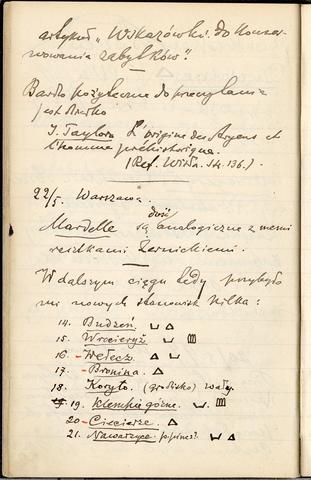 artykuł „Wskazówki do konser-
wowania zabytków".
Bardo pożyteczne do przejrzenia
jest dzieło
I. Taylora L'origine des Aryens et
l'homme préhistorique.
(Ref. Wisła. str. 136.)
22/5. Warszawa.
dość
Mardelle są analogiczne z memi
Żernickiemi.
W dalszym ciągu kiedy przybyło
mi nowych stanowisk kilka:
14. Budzeń. ⊔ △
15. Wrocieryż. ⊔
16 - Wełecz. △ ⊔
17. - Bronina. △
18. Koryto. (grodisko) wały.
19. Klempie górne. ⊔.
20 - Ciecierze. △
21. Nawarzyce. ⊔ △